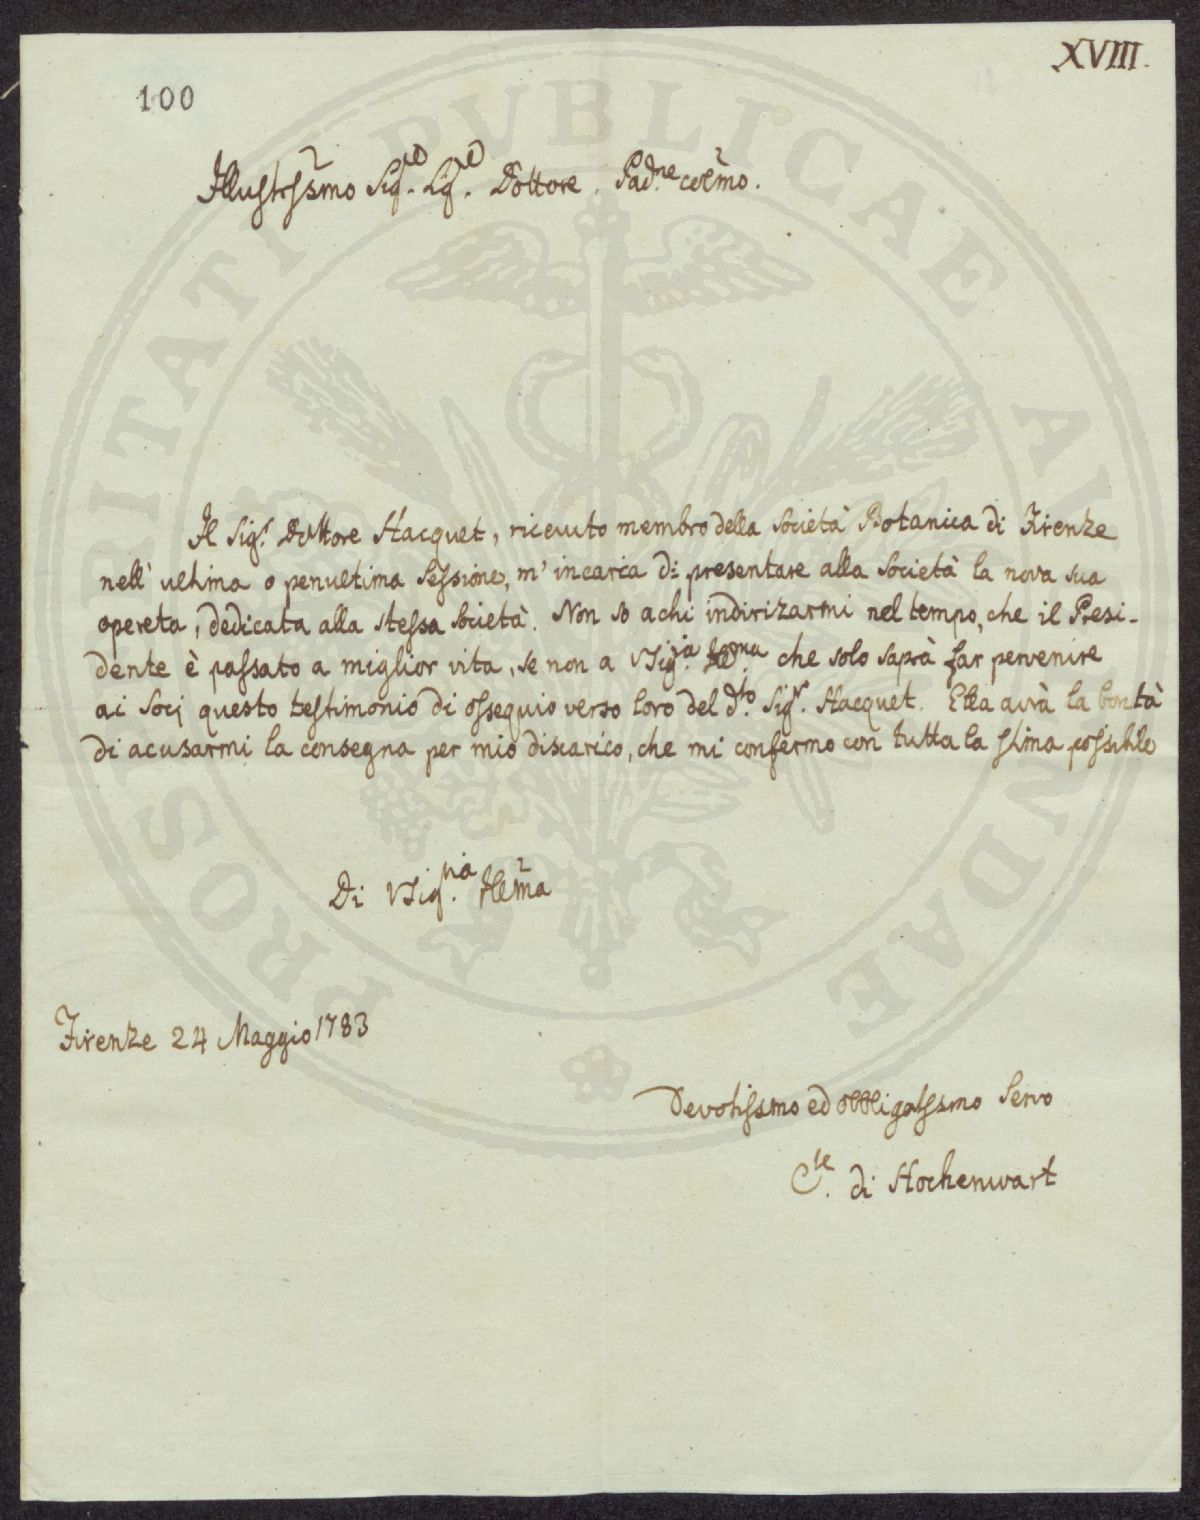 XVIII.
100
Illustrissmo Sig.e Sig.e Dottore Pad.ne colmo.
Il Sig.r Dottore Hacquet, ricevuto membro della Società Botanica di Firenze
nell' ultima o penultima Sessione, m' incarica di presentare alla Società la nova sua
opereta, dedicata alla stessa Società. Non so a chi indirizarmi nel tempo, che il Presi-
dente è passato a miglior vita, se non a VSig.ria che solo saprà far pervenire
ai Socj questo testimonio di ossequio verso loro del d.to Sig.r Hacquet. Ella avrà la bontà
di acusarmi la consegna per mio discarico, che mi confermo con tutta la stima possibile
Di VSig.ria Illma
Firenze 24 Maggio 1783
Devotissmo ed obbligatissmo Servo
C.te di Hochenwart
PROSPERITATI PVBLICAE AVGENDAE